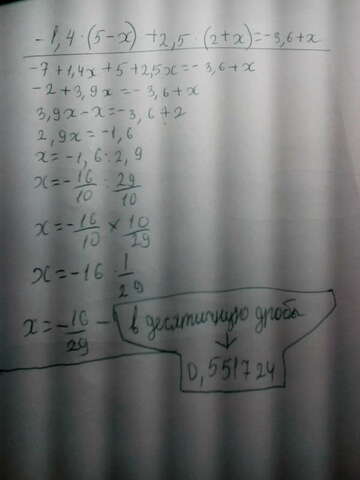 -1,4·(5-x)+2,5·(2+x)=-3,6+x
-7+1,4x+5+2,5x=-3,6+x
-2+3,9x=-3,6+x
3,9x-x=-3,6+2
2,9x=-1,6
x=-1,6:2,9
x=-16/10:29/10
x=-16/10×10/29
x=-16·1/29
x=-16/29 - в десятичную дробь
↓
0,551724